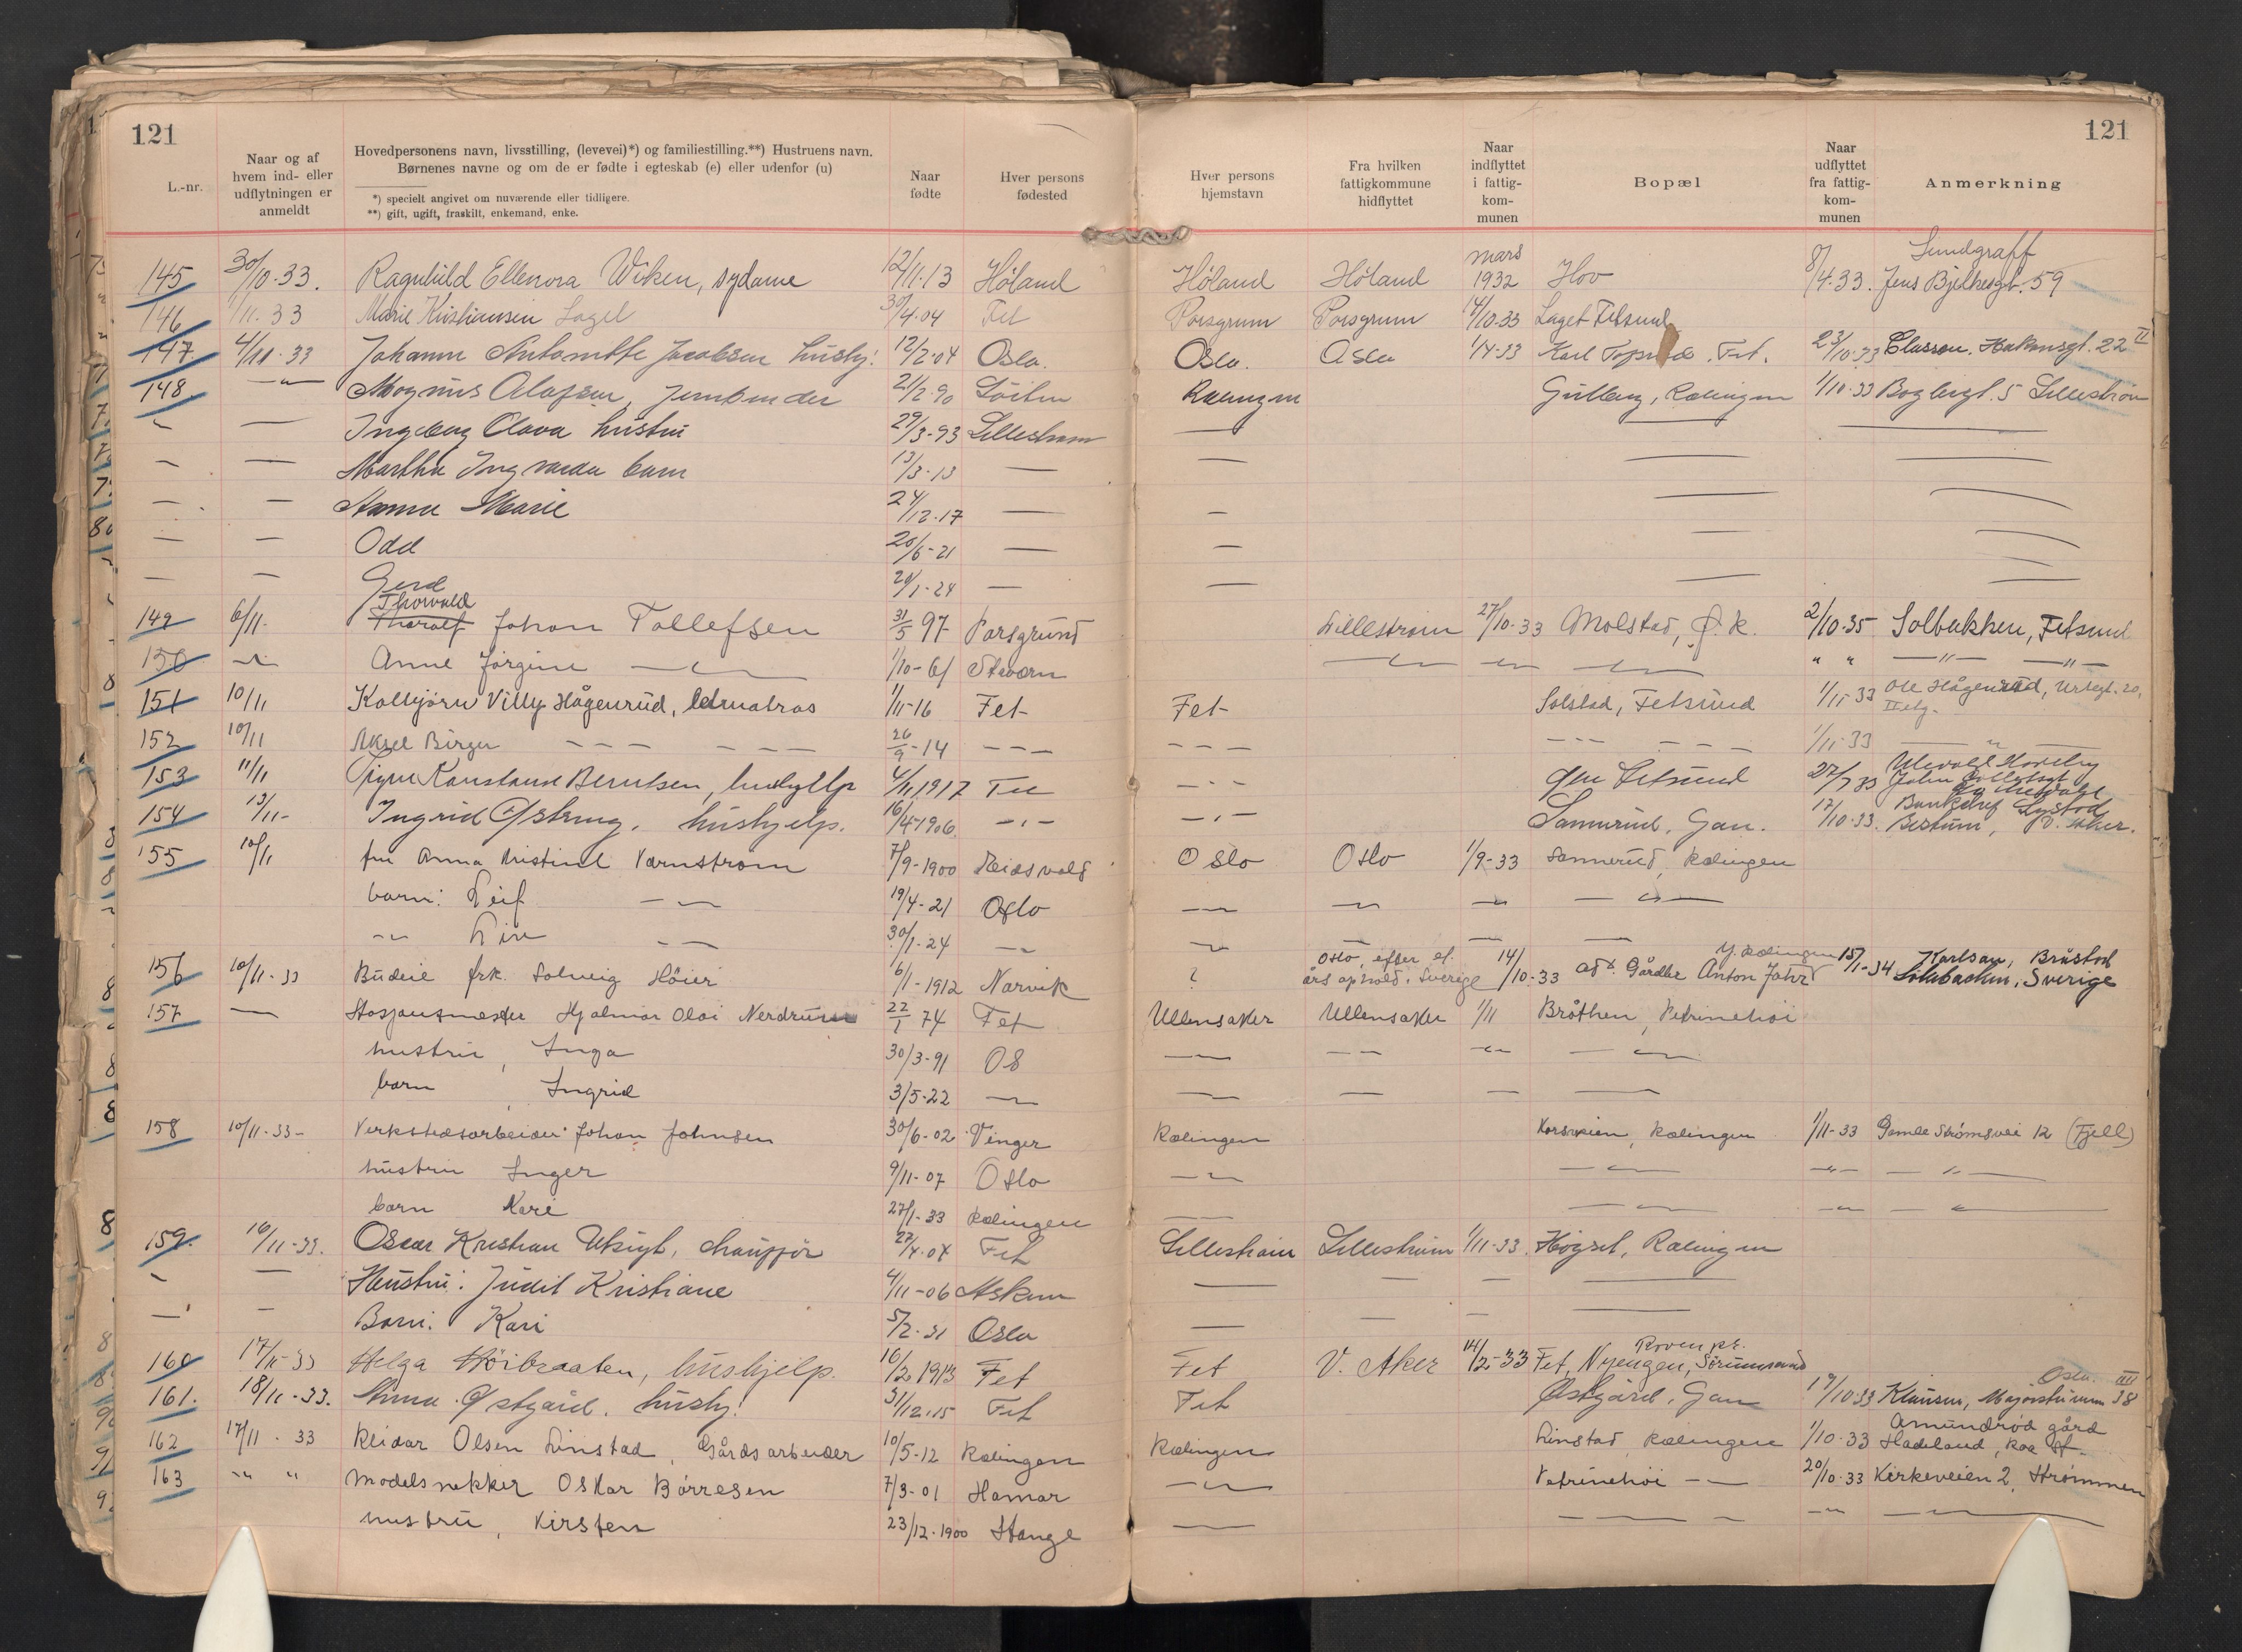 121
121
L.-nr.
Naar og af hvem ind- eller udflytningen er anmeldt
Hovedpersonens navn, livsstilling, (levevei)*) og familiestilling.**) Hustruens navn. Børnenes navne og om de er fødte i egteskab (e) eller udenfor (u)
*) specielt angivet om nuværende eller tidligere.
**) gift, ugift, fraskilt, enkemand, enke.
Naar fødte
Hver persons fødested
Hver persons hjemstavn
Fra hvilken fattigkommune hidflyttet
Naar indflyttet i fattig-kom-munen
Bopæl
Naar udflyttet fra fattig-kom-munen
Anmerkning
145 30/10-33. Ragnhild Ellenora Wiken, sydame 12/11-13 Høland Høland Høland mars 1932 Hov 8/4-33. Jens Bjelkesgt. 59
146 1/11-33 Marie Kristiansen 30/4-04 Fet Porsgrunn Porsgrunn 4/10-33 Laget Fetsund
147 4/11-33 Jacobsen hushj. 12/2-04 Oslo. Oslo. Oslo 1/4-33 Karl Fet. 23/10-33 22 II
148 —"— Magnus Olafsen, Jernbinder 21/2-90 Løiten Rælingen Gulberg, Rælingen 1/10-33 5 Lillestrøm
— — Ingeborg Olava hustru 29/3-93 Lillestrøm — — —
— — Martha barn 13/3-13 — — — —
— — Anna Marie 24/12-17 — — — —
— — Odd 20/6-21 — — — —
— — Gerd 20/1-24 — — — —
149 6/11- Thorvald Johan Tollefsen 31/5 97 Porsgrund Lillestrøm 27/10-33 Molstad, Ø.k. 2/10-35 Solbakken, Fetsund
150 —"— Anne Jørgine —"— 1/10-61 Stavern —"— —"— —"— " " —"— —"—
151 10/11 Kolbjørn Villy Hågenrud, 1/11-16 Fet Fet Solstad, Fetsund 1/11-33 Ole Hågenrud, Urtegt. 20, II etg.
152 10/11 Aksel Birger - - - - - - 26/9-14 - - - - - - - - - - - - 1/11-33 —"—
153 11/11 Signe Konstanse Berntsen, hushjelp 4/11 1917 Fet —"— Fetsund 27/7 33
154 13/11- Ingrid Østreng, hushjelp. 16/4-1906 —"— —"— Sannerud, Gan. 17/10-33. Bestum, V. Aker.
155 10/11 fru Anna Kristine Varnstrøm 7/9-1900 Eidsvold Oslo Oslo 1/9-33 Sannerud, Rælingen
barn: Leif —"— 19/4-21 Oslo —"— —"— —"— —"—
—"— Liv —"— 30/1-24 —"— —"— — — —
156 10/11-33 Budeie frk. Solveig Höier 6/1-1912 Narvik ? Oslo, efter et års ophold i Sverige 14/10-33 Gårdbr Anton Y. Rælingen 15/1-34 Karlsson, Sverige
157 — Stasjonsmester Hjalmar Olai Nerdrum 22/1 74 Fet Ullensaker Ullensaker 1/11 Bråthen, Petrinehöi
hustru, Inga 30/3-91 Os —"— —"— —"— —"—
barn, Ingrid 3/5-22 —"— — — — —
158 10/11-33- Verkstedsarbeider Johan Johnsen 30/6-02 Vinger Rælingen Korsveien, Rælingen 1/11-33 Gamle Strømsvei 12 (Fjell)
hustru Inger 9/11-07 Oslo —"— —"— —"— —"—
barn Kari 27/1-33 Rælingen — —"— —"— —"—
159. 16/11-33. Oscar Kristian Utsigt, chauffør 27/4-04 Fet Lillestrøm Lillestrøm 1/11-33. Høgset, Rælingen
— — Hustru: Judit Kristiane 4/11-06 Askim — — — —
— — Barn: Kari 5/2-31 Oslo — — — —
160 17/11-33 Helga Høibraaten, hushjelp. 10/2 1913 Fet Fet V. Aker 14/2-33 Fet, Nyengen, Roven pr. Sørumsand
161. 18/11-33. Anna Østgård, hushj. 31/12-15 Fet Fet Østgård, Gan 19/10-33 Klausen, Majorstuveien 38 III Oslo
162 17/11-33 Reidar Olsen Linstad, Gårdsarbeider 10/5-12 Rælingen Rælingen Linstad, Rælingen 1/10-33 Amundrød gård Hadeland, Roa st.
163 " " Modelsnekker Oskar Børresen 7/3-01 Hamar —"— Petrinehöi —"— 20/10-33 Kirkeveien 2, Strømmen
hustru, Kirsten 23/12-1900 Stange — —"— —"— —"—